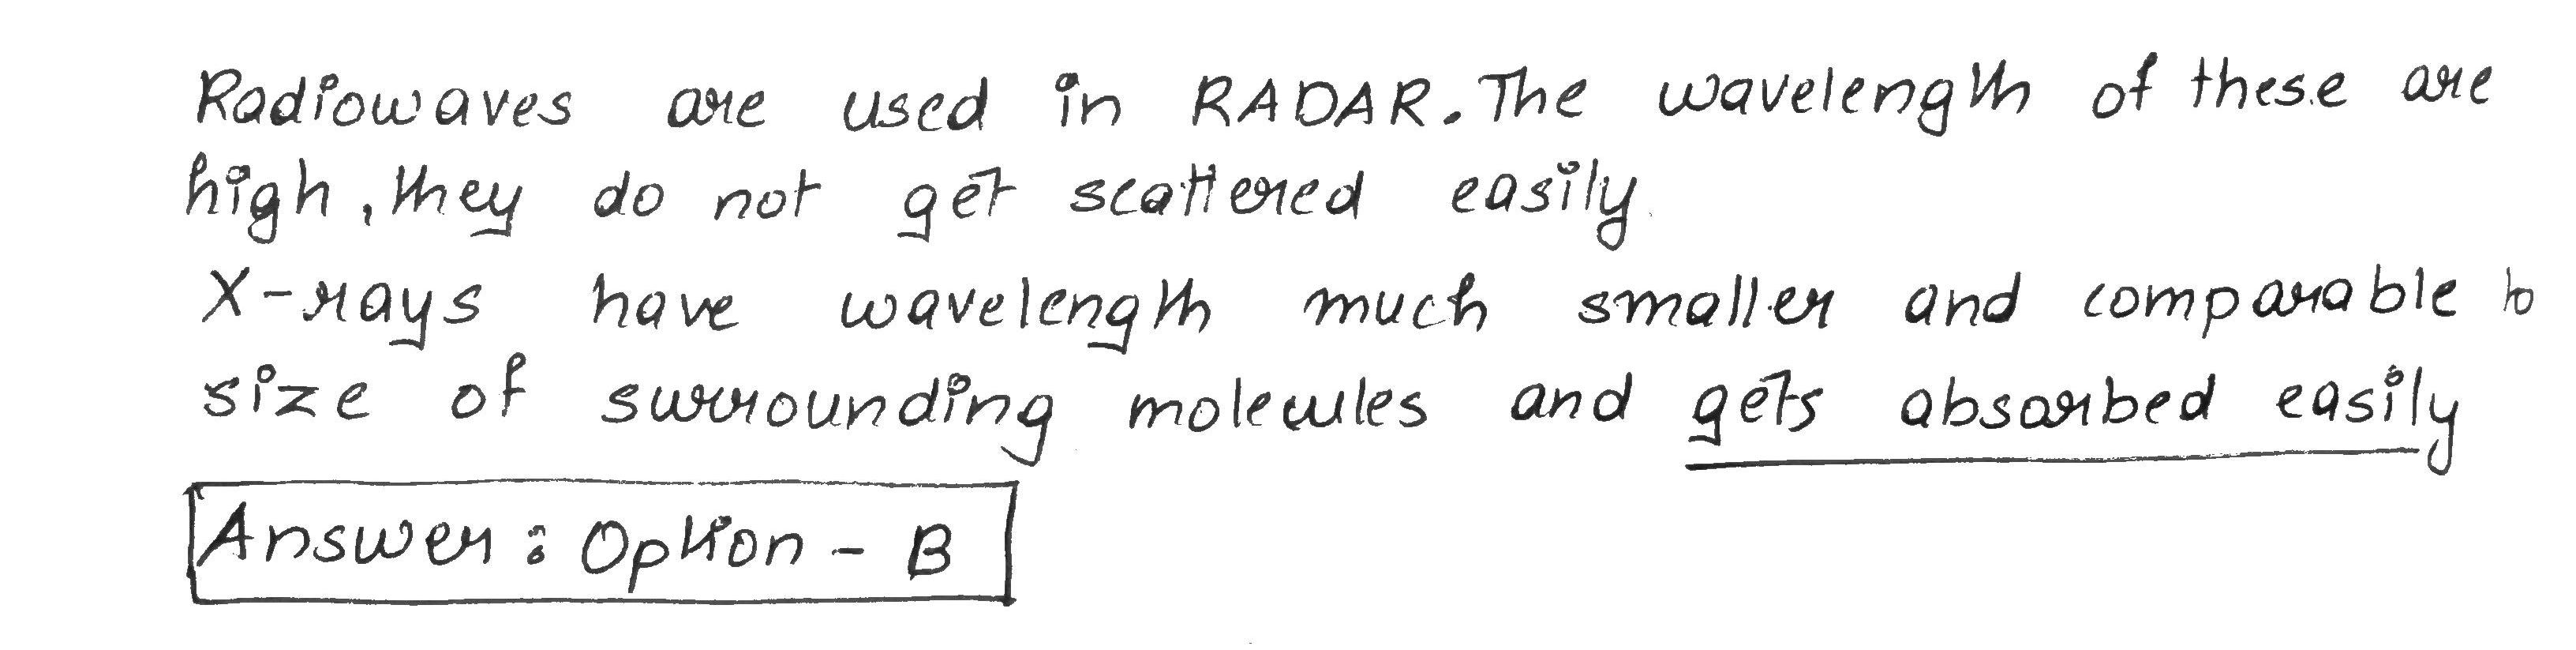 Radiowaves are used in RADAR. The wavelength of these are
high, they do not get scattered easily.
X-rays have wavelength much smaller and comparable to
size of surrounding molecules and gets absorbed easily
Answer : Option - B